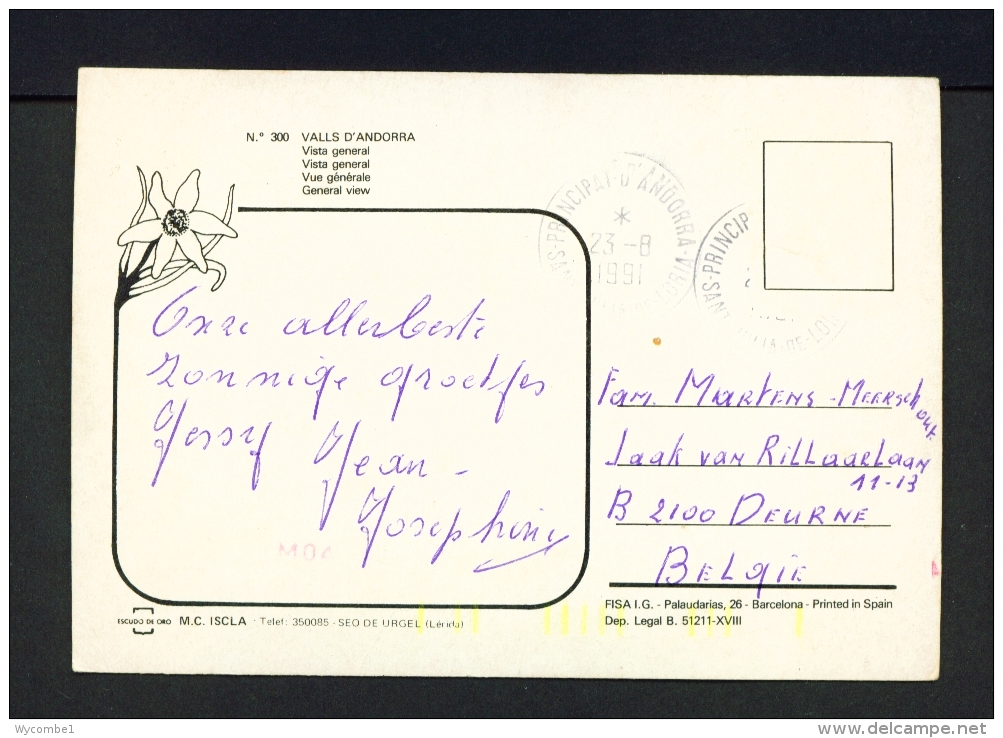 N.º 300 VALLS D'ANDORRA
Vista general
Vista general
Vue générale
General view
S-PRINCIPAT-D'ANDORRA
23-8
1991
S-PRINCIP
SAN
Onze allerbeste
zonnige groetjes
Jessy Jean -
Josephine
Fam. Martens-Meerschout
Jaak van Rillaarlaan
11-13
B 2100 Deurne
België
ESCUDO DE ORO M.C. ISCLA · Telef: 350085 - SEO DE URGEL (Lérida)
FISA I.G. - Palaudarias, 26 - Barcelona - Printed in Spain
Dep. Legal B. 51211-XVIII
Wycombe1
delcampe.net